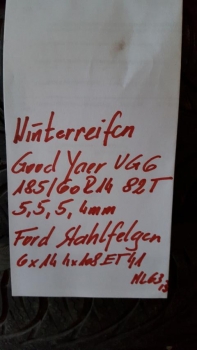 Winterreifen
Good Yaer UG6
185/60R14 82T
5,5,5,4mm
Ford Stahlfelgen
6x14 4x108 ET41